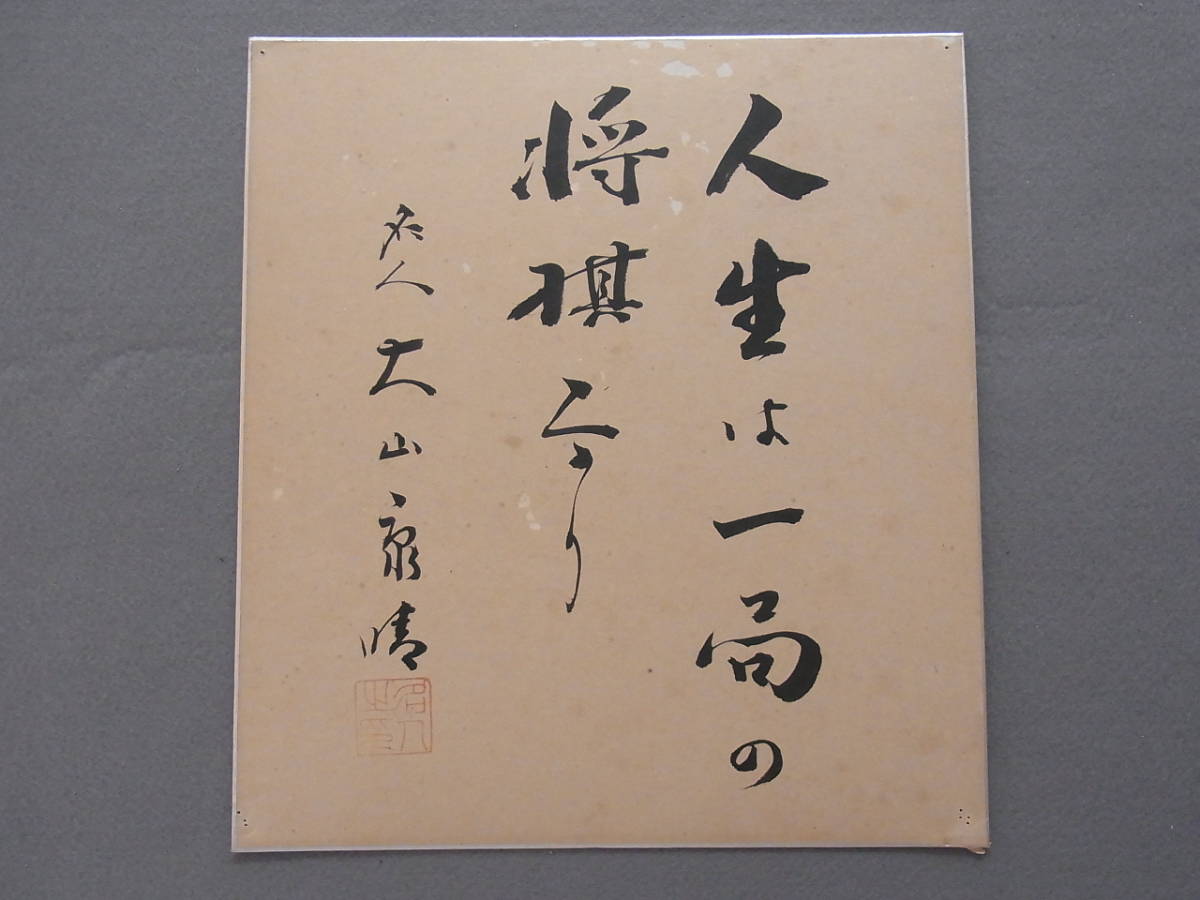 人生は一局の
将棋なり
名人 大山康晴
名人之印